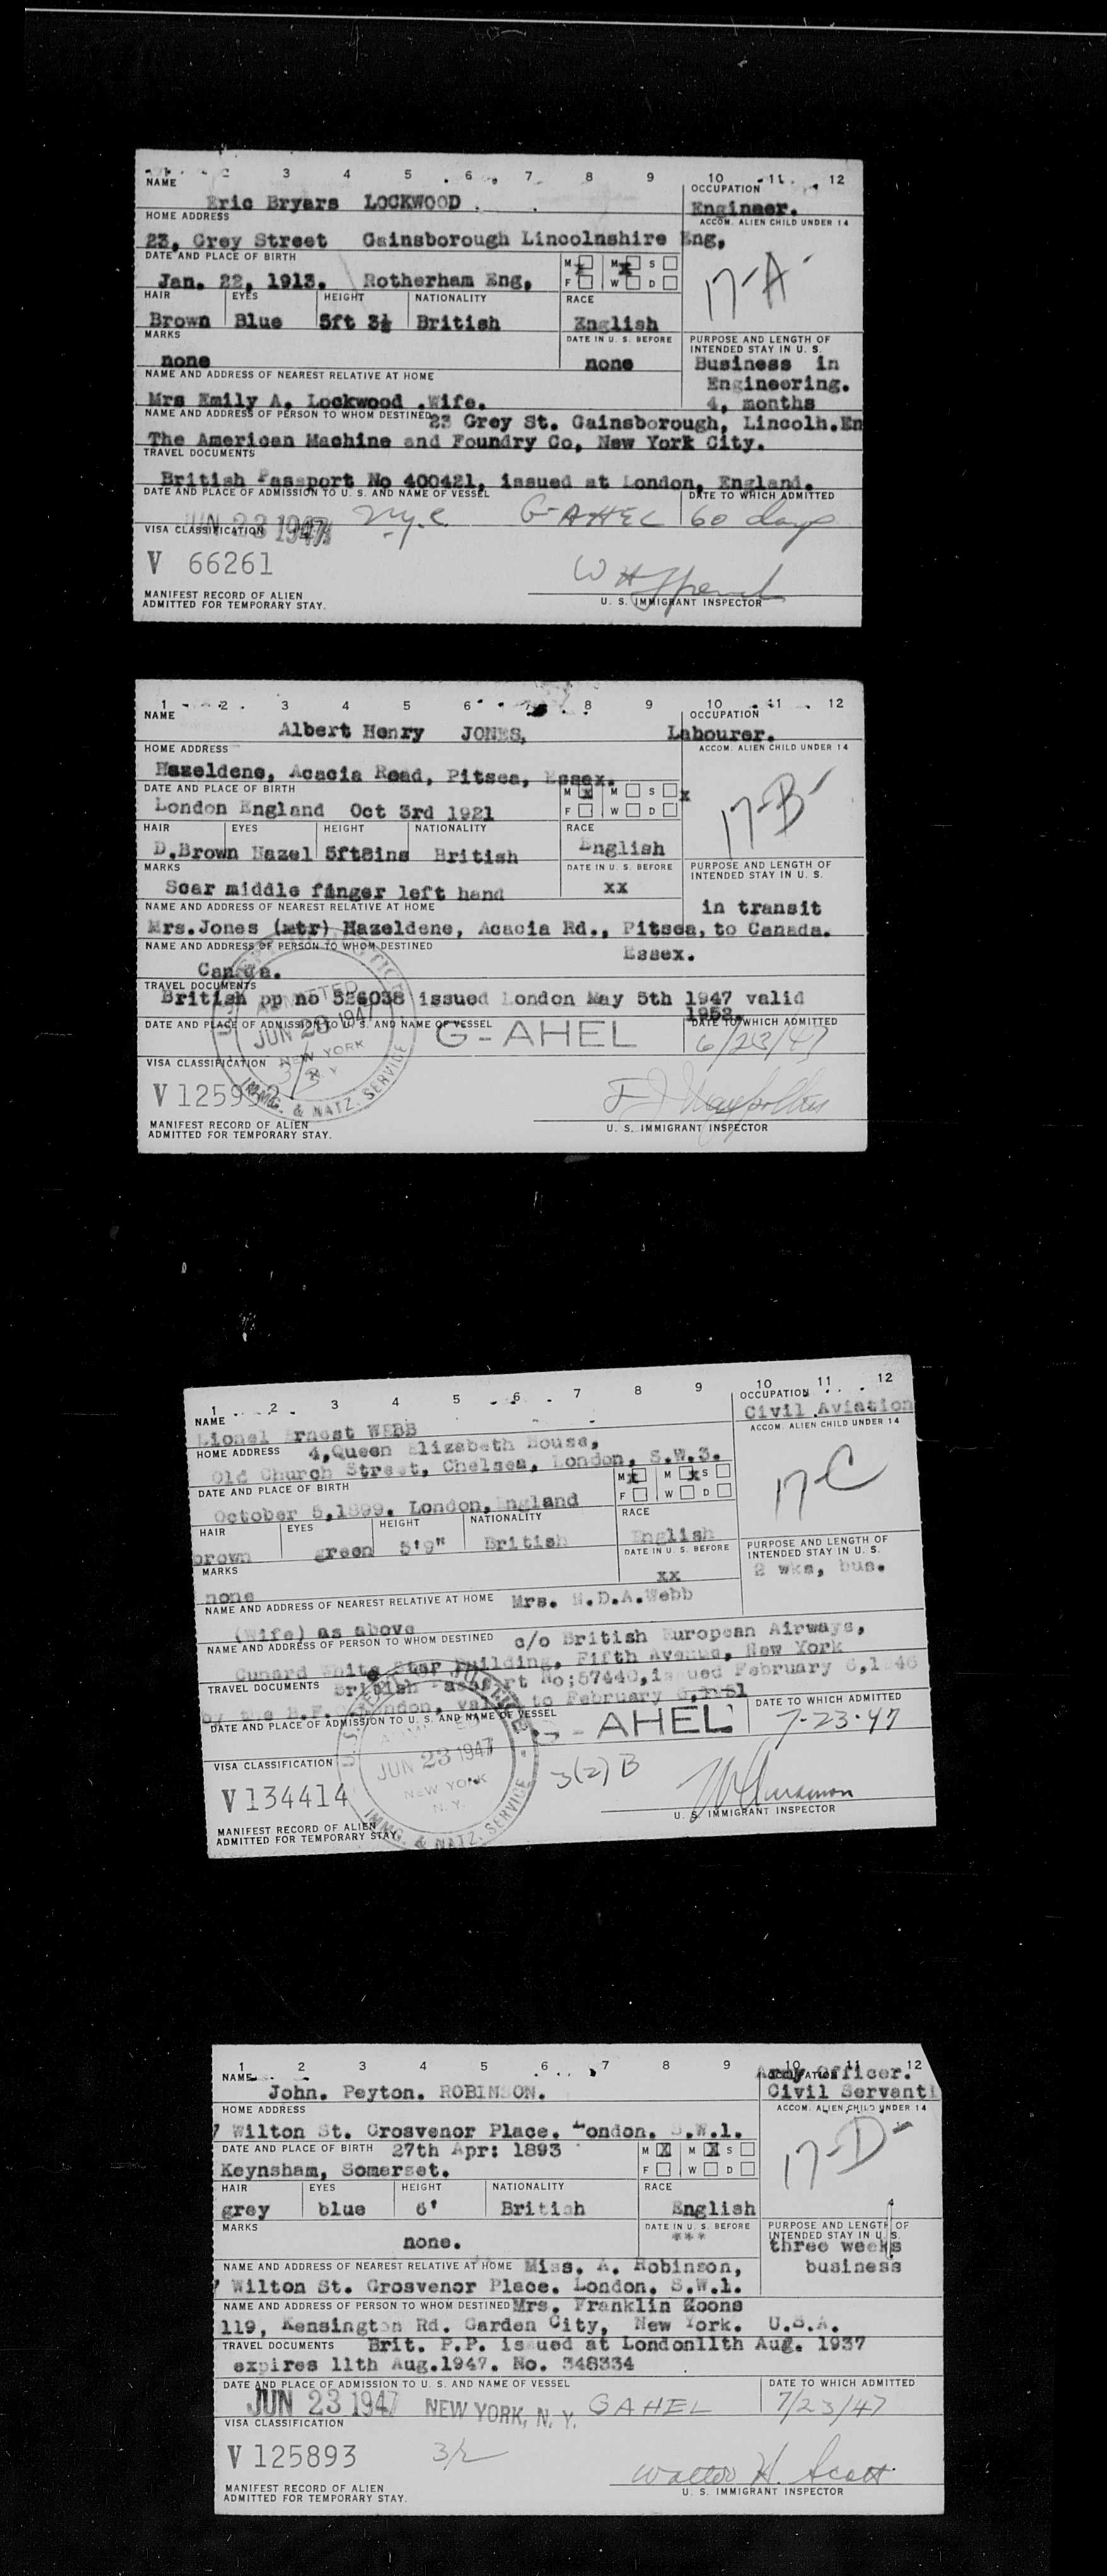 1 2 3 4 5 6 7 8 9 10 11 12
NAME OCCUPATION
Eric Bryars LOCKWOOD Engineer.
HOME ADDRESS ACCOM. ALIEN CHILD UNDER 14
23, Grey Street Gainsborough Lincolnshire Eng,
DATE AND PLACE OF BIRTH M M S
Jan. 22, 1913. Rotherham Eng, F W D 17-A
HAIR EYES HEIGHT NATIONALITY RACE
Brown Blue 5ft 3½ British English
MARKS DATE IN U. S. BEFORE PURPOSE AND LENGTH OF INTENDED STAY IN U. S.
none none Business in
NAME AND ADDRESS OF NEAREST RELATIVE AT HOME Engineering.
Mrs Emily A. Lockwood .Wife. 4, months
NAME AND ADDRESS OF PERSON TO WHOM DESTINED 23 Grey St. Gainsborough, Lincolh.En
The American Machine and Foundry Co, New York City.
TRAVEL DOCUMENTS
British Passport No 400421, issued at London, England.
DATE AND PLACE OF ADMISSION TO U. S. AND NAME OF VESSEL DATE TO WHICH ADMITTED
JUN 23 1947 N.y.c. G-AHEL 60 days
VISA CLASSIFICATION
V 66261
MANIFEST RECORD OF ALIEN
ADMITTED FOR TEMPORARY STAY. U. S. IMMIGRANT INSPECTOR
1 2 3 4 5 6 7 8 9 10 11 12
NAME OCCUPATION
Albert Henry JONES, Labourer.
HOME ADDRESS ACCOM. ALIEN CHILD UNDER 14
Hazeldene, Acacia Road, Pitsea, Essex.
DATE AND PLACE OF BIRTH M x M S x
London England Oct 3rd 1921 F W D 17-B
HAIR EYES HEIGHT NATIONALITY RACE
D.Brown Hazel 5ft8ins British English
MARKS DATE IN U. S. BEFORE PURPOSE AND LENGTH OF INTENDED STAY IN U. S.
Scar middle finger left hand xx
NAME AND ADDRESS OF NEAREST RELATIVE AT HOME in transit
Mrs.Jones (mtr) Hazeldene, Acacia Rd., Pitsea, to Canada.
NAME AND ADDRESS OF PERSON TO WHOM DESTINED Essex.
Canada.
TRAVEL DOCUMENTS
British pp no 526038 issued London May 5th 1947 valid
1952.
DATE AND PLACE OF ADMISSION TO U. S. AND NAME OF VESSEL DATE TO WHICH ADMITTED
ADMITTED JUN 23 1947 NEW YORK N.Y. IMMIG. & NATZ. SERVICE G-AHEL 6/23/47
VISA CLASSIFICATION
V 125992
MANIFEST RECORD OF ALIEN
ADMITTED FOR TEMPORARY STAY. U. S. IMMIGRANT INSPECTOR
1 2 3 4 5 6 7 8 9 10 11 12
NAME OCCUPATION
Lionel Ernest WEBB Civil Aviation
HOME ADDRESS 4,Queen Elizabeth House, ACCOM. ALIEN CHILD UNDER 14
Old Church Street, Chelsea, London, S.W.3.
DATE AND PLACE OF BIRTH M x M x S
October 5,1899. London,England F W D 17-C
HAIR EYES HEIGHT NATIONALITY RACE
brown green 5'9" British English
MARKS DATE IN U. S. BEFORE PURPOSE AND LENGTH OF INTENDED STAY IN U. S.
none xx 2 wks, bus.
NAME AND ADDRESS OF NEAREST RELATIVE AT HOME Mrs. N.D.A.Webb
(Wife) as above
NAME AND ADDRESS OF PERSON TO WHOM DESTINED c/o British European Airways,
Cunard White Star Building, Fifth Avenue, New York
TRAVEL DOCUMENTS British Passport No;57440,issued February 6,1946
by the London, valid to February 6,1951
DATE AND PLACE OF ADMISSION TO U. S. AND NAME OF VESSEL DATE TO WHICH ADMITTED
JUN 23 1947 NEW YORK N.Y. IMMIG. & NATZ. SERVICE G-AHEL 7-23-47
VISA CLASSIFICATION 3(2)B
V 134414
MANIFEST RECORD OF ALIEN
ADMITTED FOR TEMPORARY STAY. U. S. IMMIGRANT INSPECTOR
1 2 3 4 5 6 7 8 9 10 11 12
NAME OCCUPATION Army Officer.
John. Peyton. ROBINSON. Civil Servant
HOME ADDRESS ACCOM. ALIEN CHILD UNDER 14
7 Wilton St. Grosvenor Place. London. S.W.1.
DATE AND PLACE OF BIRTH 27th Apr: 1893 M X M X S
Keynsham, Somerset. F W D 17-D
HAIR EYES HEIGHT NATIONALITY RACE
grey blue 6' British English
MARKS DATE IN U. S. BEFORE PURPOSE AND LENGTH OF INTENDED STAY IN U. S.
none. *** three weeks
NAME AND ADDRESS OF NEAREST RELATIVE AT HOME Miss. A. Robinson, business
7 Wilton St. Grosvenor Place. London. S.W.1.
NAME AND ADDRESS OF PERSON TO WHOM DESTINED Mrs. Franklin Koons
119, Kensington Rd. Garden City, New York. U.S.A.
TRAVEL DOCUMENTS Brit. P.P. issued at London11th Aug. 1937
expires 11th Aug.1947. No. 348334
DATE AND PLACE OF ADMISSION TO U. S. AND NAME OF VESSEL DATE TO WHICH ADMITTED
JUN 23 1947 NEW YORK, N. Y. GAHEL 7/23/47
VISA CLASSIFICATION
V 125893 3/2 Walter H. Scott
MANIFEST RECORD OF ALIEN
ADMITTED FOR TEMPORARY STAY. U. S. IMMIGRANT INSPECTOR